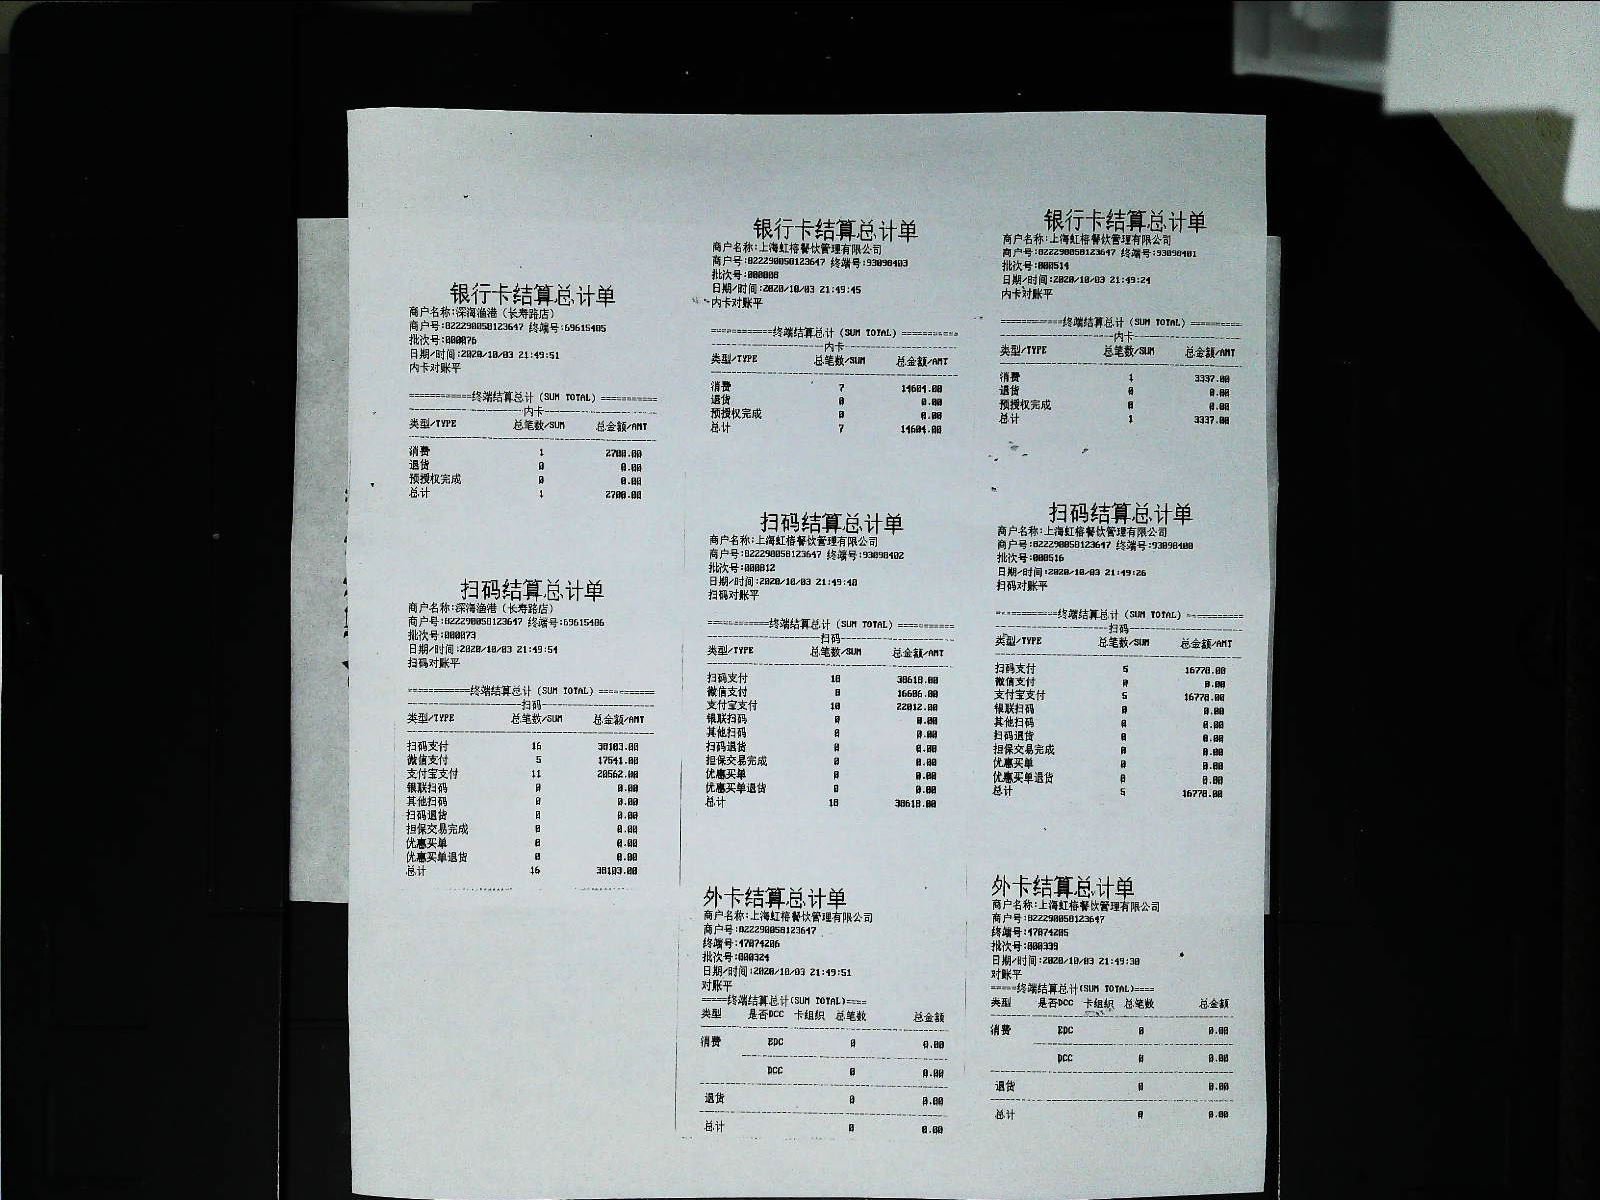 银行卡结算总计单
商户名称:深海渔港（长寿路店）
商户号:822290058123647 终端号:69615405
批次号:000076
日期/时间:2020/10/03 21:49:51
内卡对账平
============终端结算总计（SUM TOTAL）===========
内卡
类型/TYPE 总笔数/SUM 总金额/AMT
消费 1 2700.00
退货 0 0.00
预授权完成 0 0.00
总计 1 2700.00
扫码结算总计单
商户名称:深海渔港（长寿路店）
商户号:822290058123647 终端号:69615406
批次号:000073
日期/时间:2020/10/03 21:49:54
扫码对账平
============终端结算总计（SUM TOTAL）===========
扫码
类型/TYPE 总笔数/SUM 总金额/AMT
扫码支付 16 38103.00
微信支付 5 17541.00
支付宝支付 11 20562.00
银联扫码 0 0.00
其他扫码 0 0.00
扫码退货 0 0.00
担保交易完成 0 0.00
优惠买单 0 0.00
优惠买单退货 0 0.00
总计 16 38103.00
银行卡结算总计单
商户名称:上海虹榕餐饮管理有限公司
商户号:822290058123647 终端号:93098403
批次号:000008
日期/时间:2020/10/03 21:49:45
内卡对账平
============终端结算总计（SUM TOTAL）===========
内卡
类型/TYPE 总笔数/SUM 总金额/AMT
消费 7 14604.00
退货 0 0.00
预授权完成 0 0.00
总计 7 14604.00
扫码结算总计单
商户名称:上海虹榕餐饮管理有限公司
商户号:822290058123647 终端号:93098402
批次号:000812
日期/时间:2020/10/03 21:49:48
扫码对账平
============终端结算总计（SUM TOTAL）===========
扫码
类型/TYPE 总笔数/SUM 总金额/AMT
扫码支付 18 38618.00
微信支付 8 16606.00
支付宝支付 10 22012.00
银联扫码 0 0.00
其他扫码 0 0.00
扫码退货 0 0.00
担保交易完成 0 0.00
优惠买单 0 0.00
优惠买单退货 0 0.00
总计 18 38618.00
外卡结算总计单
商户名称:上海虹榕餐饮管理有限公司
商户号:822290058123647
终端号:47074206
批次号:000324
日期/时间:2020/10/03 21:49:51
对账平
=====终端结算总计(SUM TOTAL)====
类型 是否DCC 卡组织 总笔数 总金额
消费 EDC 0 0.00
DCC 0 0.00
退货 0 0.00
总计 0 0.00
银行卡结算总计单
商户名称:上海虹榕餐饮管理有限公司
商户号:822290058123647 终端号:93098401
批次号:000514
日期/时间:2020/10/03 21:49:24
内卡对账平
============终端结算总计（SUM TOTAL）===========
内卡
类型/TYPE 总笔数/SUM 总金额/AMT
消费 1 3337.00
退货 0 0.00
预授权完成 0 0.00
总计 1 3337.00
扫码结算总计单
商户名称:上海虹榕餐饮管理有限公司
商户号:822290058123647 终端号:93098400
批次号:000516
日期/时间:2020/10/03 21:49:26
扫码对账平
============终端结算总计（SUM TOTAL）===========
扫码
类型/TYPE 总笔数/SUM 总金额/AMT
扫码支付 5 16778.00
微信支付 0 0.00
支付宝支付 5 16778.00
银联扫码 0 0.00
其他扫码 0 0.00
扫码退货 0 0.00
担保交易完成 0 0.00
优惠买单 0 0.00
优惠买单退货 0 0.00
总计 5 16778.00
外卡结算总计单
商户名称:上海虹榕餐饮管理有限公司
商户号:822290058123647
终端号:47074205
批次号:000339
日期/时间:2020/10/03 21:49:30
对账平
=====终端结算总计(SUM TOTAL)====
类型 是否DCC 卡组织 总笔数 总金额
消费 EDC 0 0.00
DCC 0 0.00
退货 0 0.00
总计 0 0.00